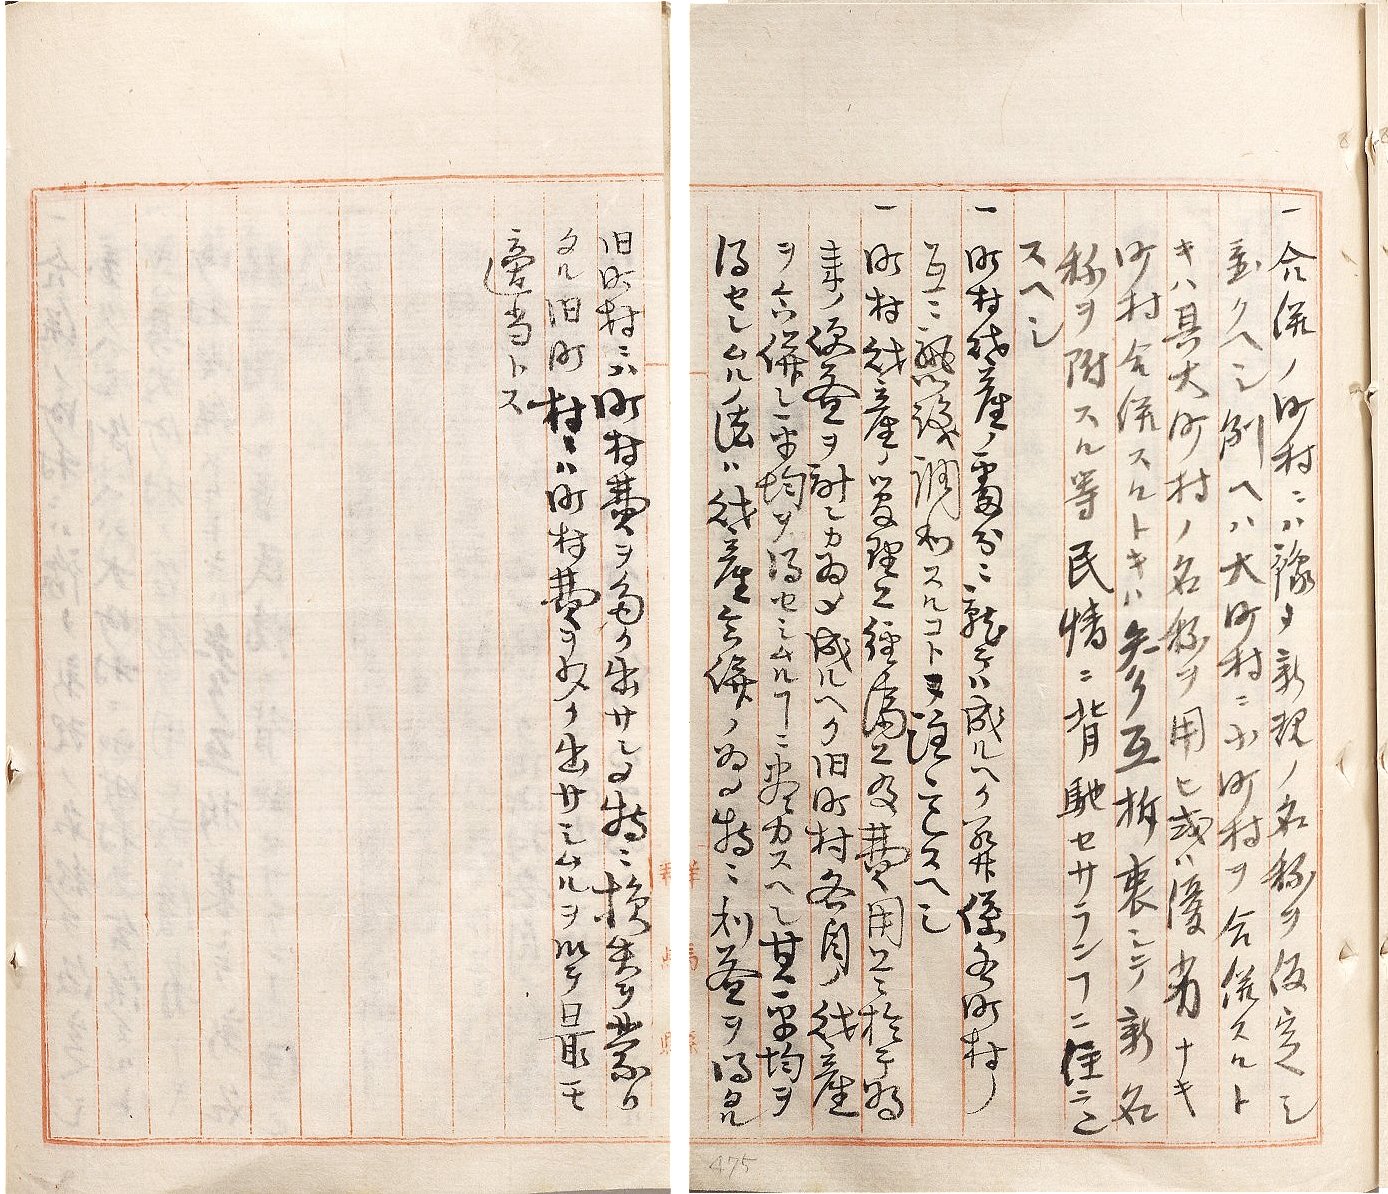 一合併ノ町村ニハ豫メ新規ノ名称ヲ仮定シ
置クヘシ例ヘハ大町村ニ小町村ヲ合併スルト
キハ其大町村ノ名称ヲ用ヒ或ハ優劣ナキ
町村合併スルトキハ各町村ノ旧名称ヲ互ニ折衷シテ新名
称ヲ附スル等民情ニ背馳セサランコトニ注意
スヘシ
一町村財産ノ處分ニ就テハ成ルヘク関係各町村ノ
互ニ熟議調和スルコトヲ注意スヘシ
一町村財産ノ管理ト経済上及費用上ニ於テ將
来ノ便益ヲ計ランカ為メ成ルヘク旧町村各自ノ財産
ヲ合併シ平均ヲ得セシムルヿニ盡力スヘシ其平均ヲ
得セシムルノ法ハ財産合併ノ為メ特ニ利益ヲ得タル
旧町村ニハ町村費ヲ多ク出サシメ特ニ損失ヲ蒙リ
タル旧町村ニハ町村費ヲ少ク出サシムルヲ以テ最モ
適当トス
群馬縣
475